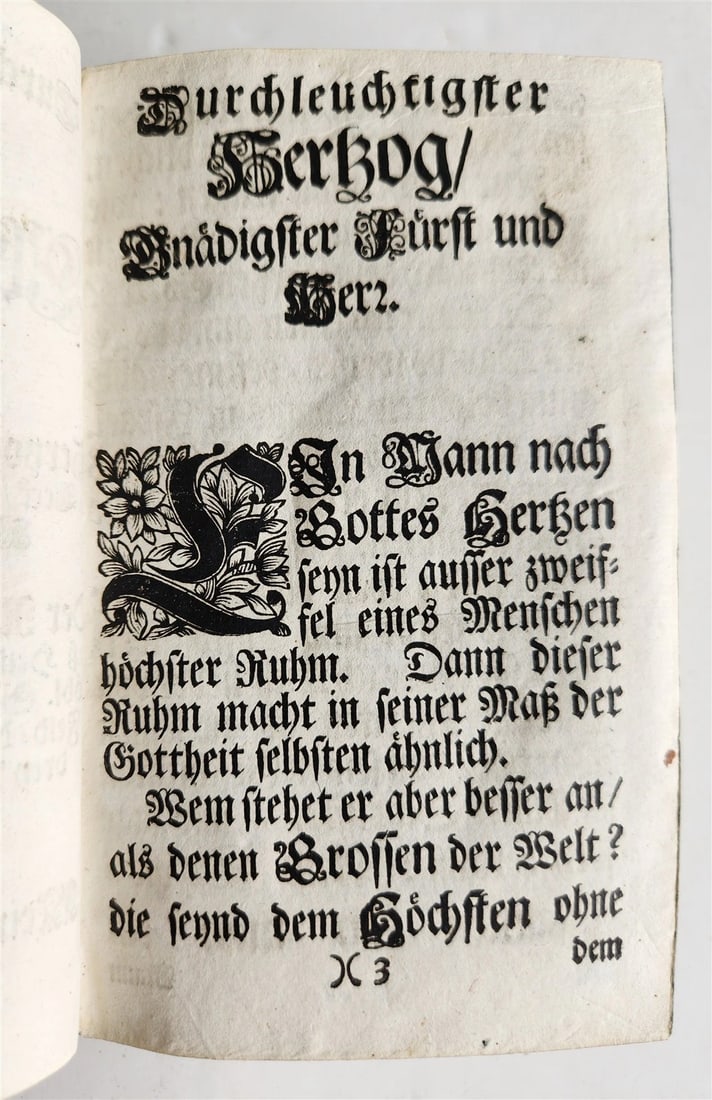 Durchleuchtigster
Hertzog/
Gnädigster Fürst und
Herꝛ.
EIn Mann nach
Gottes Hertzen
seyn ist ausser zweif-
fel eines Menschen
höchster Ruhm. Dann dieser
Ruhm macht in seiner Maß der
Gottheit selbsten ähnlich.
Wem stehet er aber besser an/
als denen Grossen der Welt?
die seynd dem Höchsten ohne
dem
)( 3